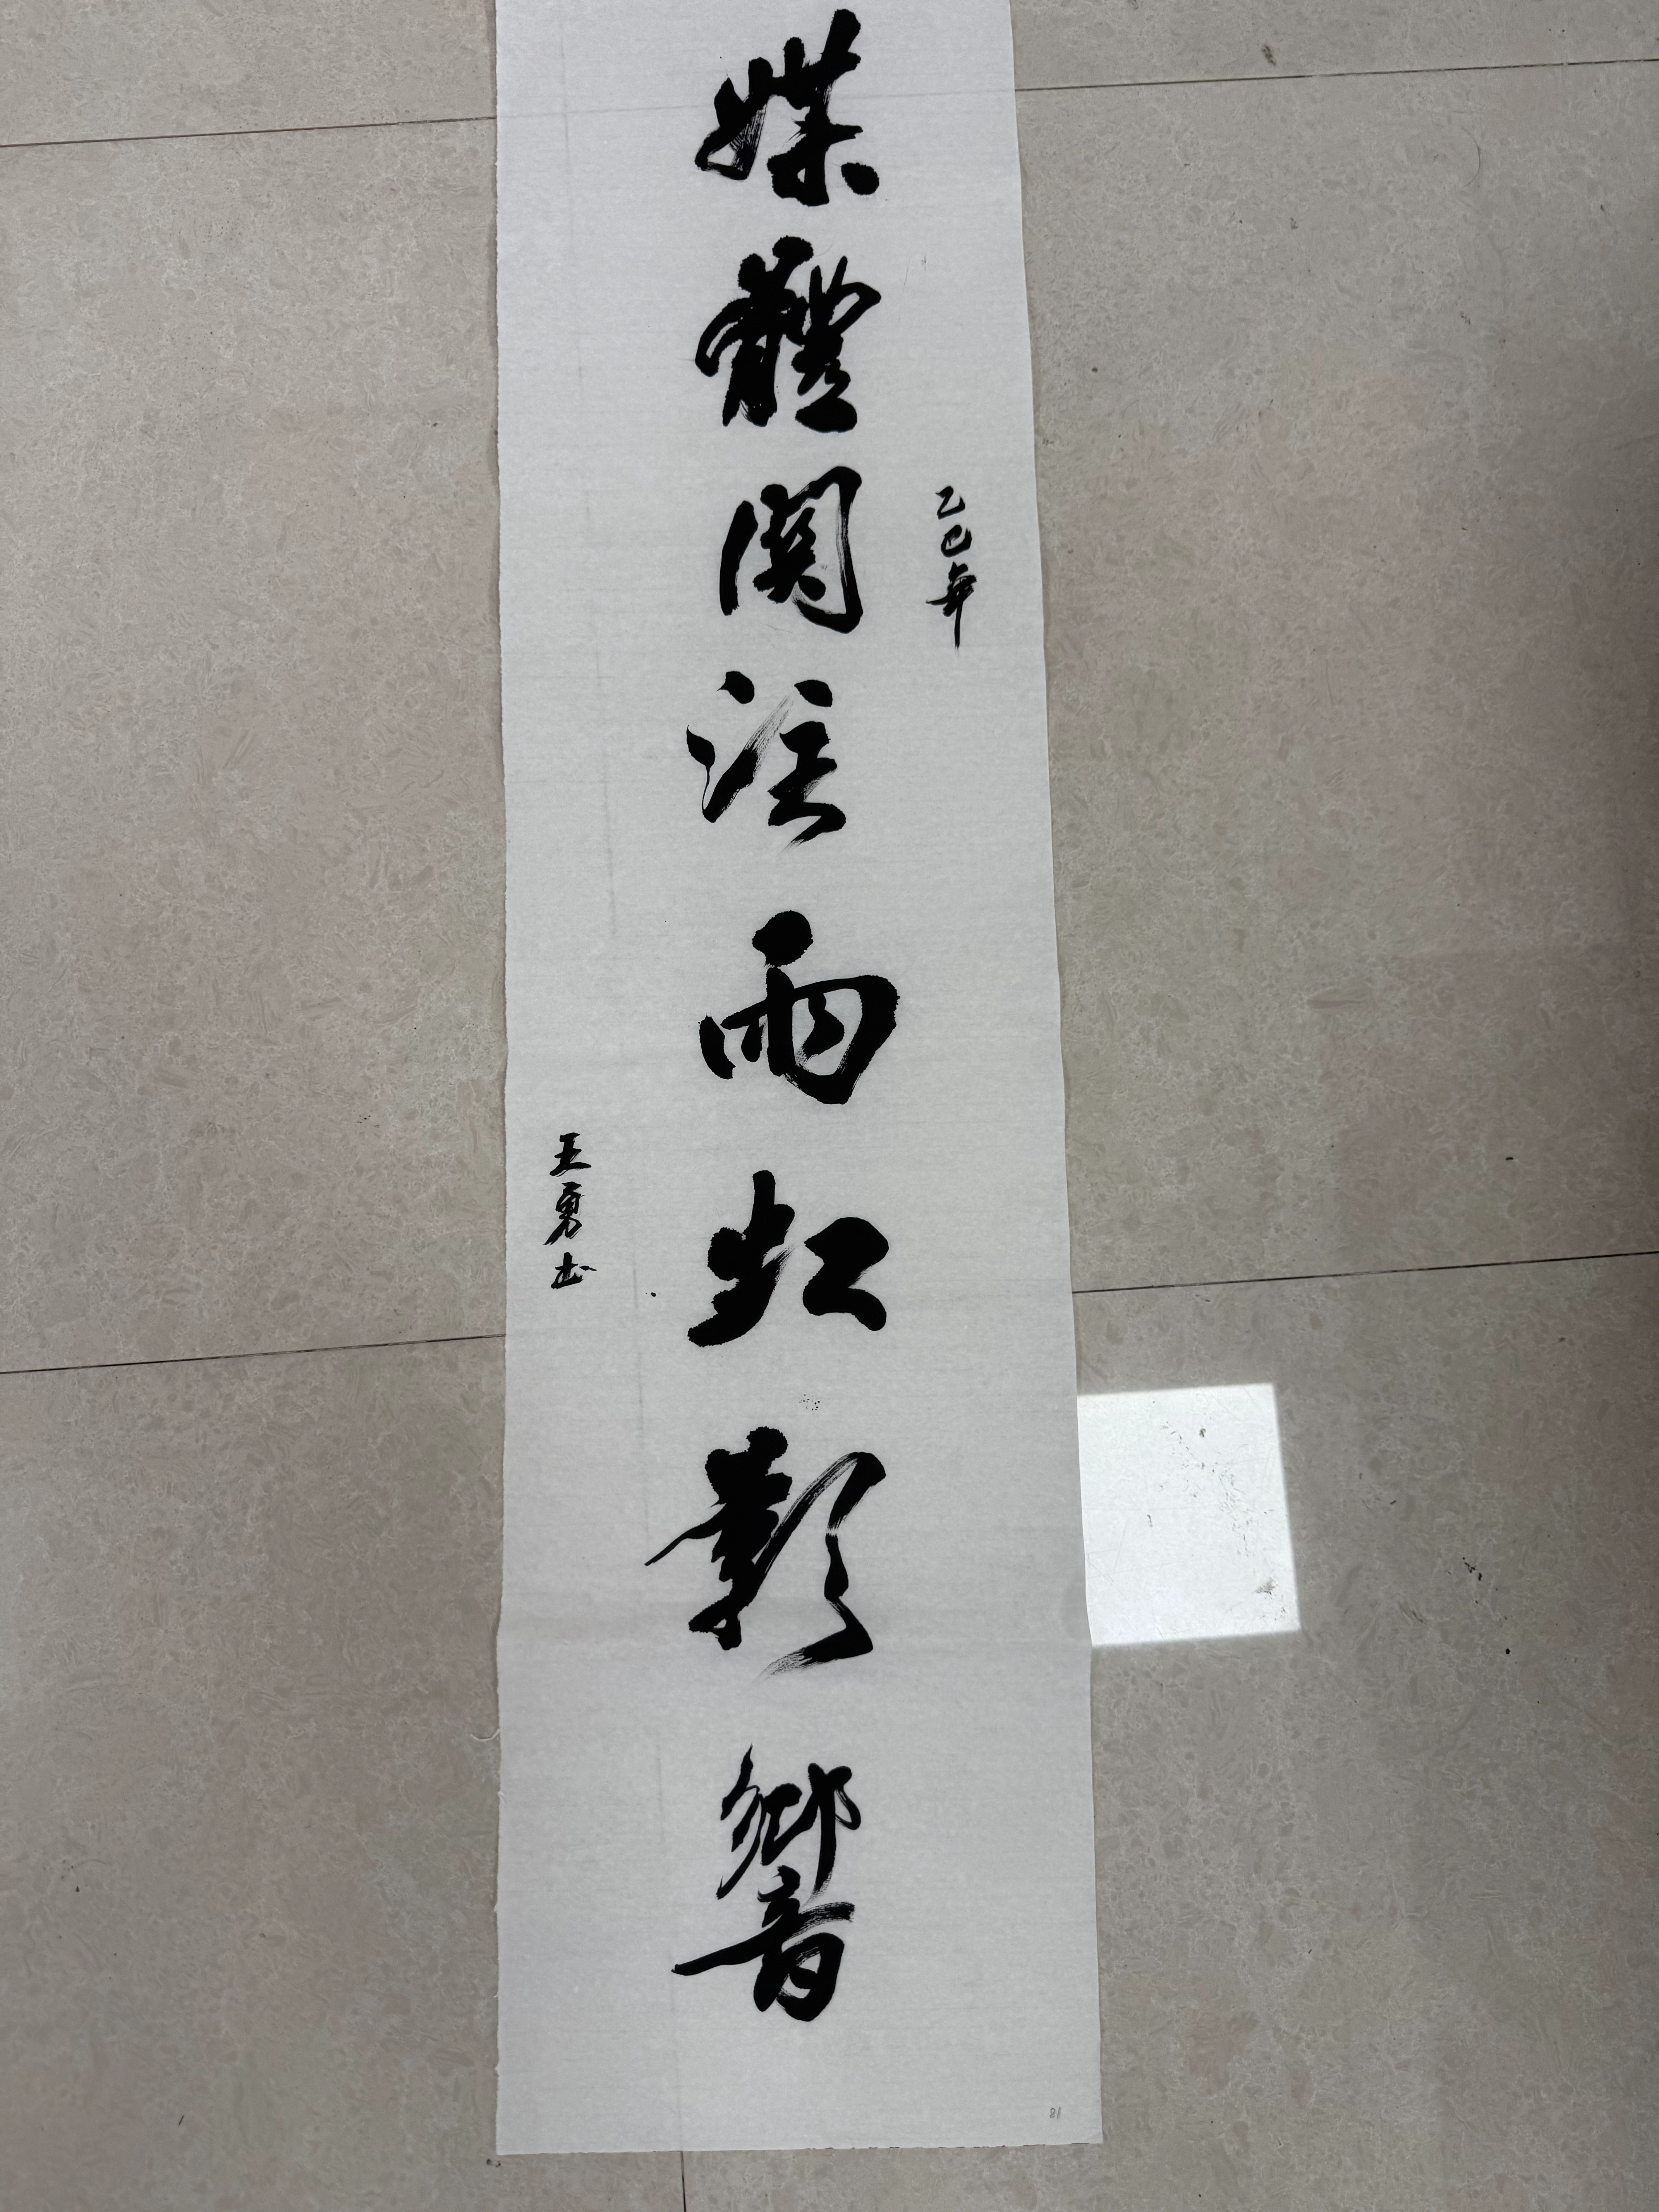 乙巳年
媒體関注雨虹影響
王勇书
81